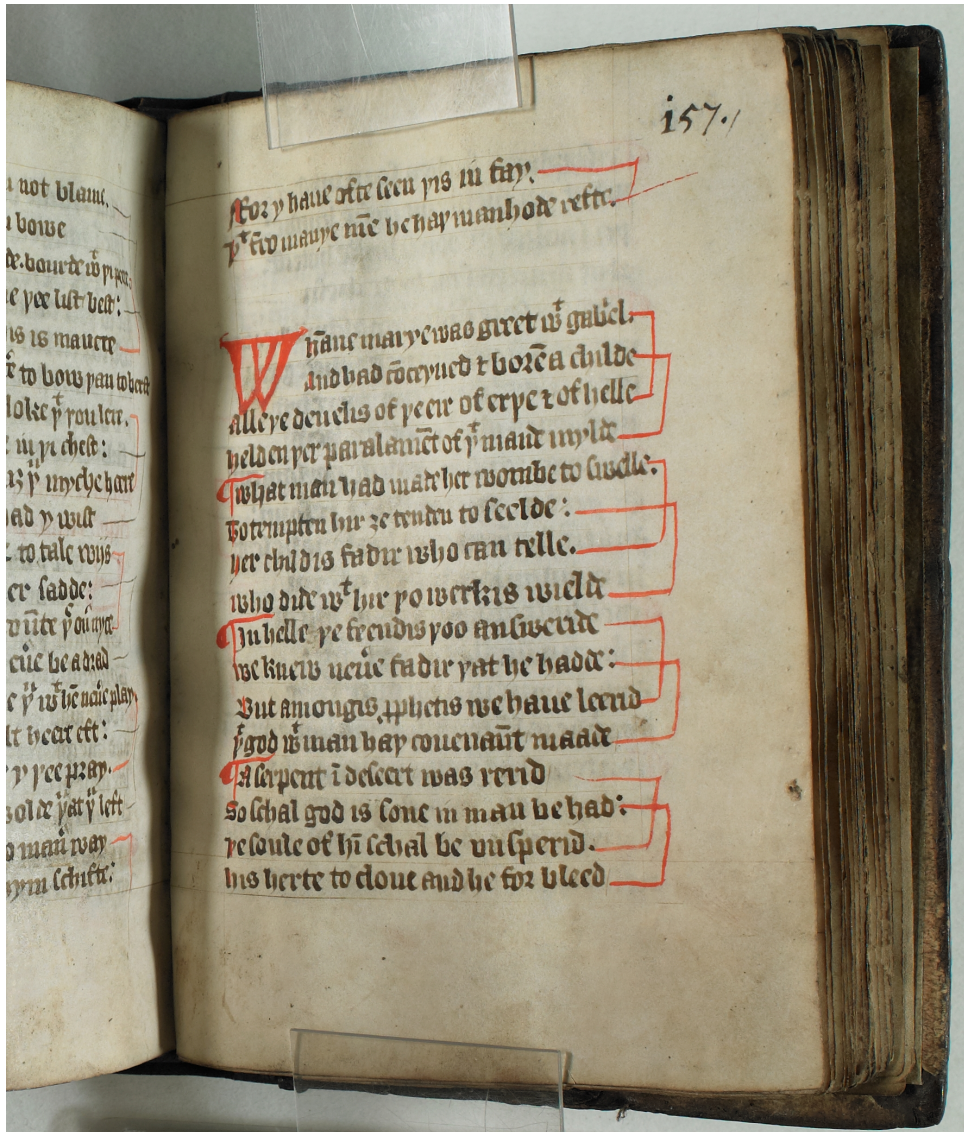 n not blame.
u bowe
de. bourde wͭ yi peer:
e yee list best:
is is maucre
to bow yan to berst
loke yͭ you lere.
e in yi chest:
yͭ myche here
had y wist
to tale wijs
er sadde:
neuͤe be adrad
wͭ hē neuͤe play.
lt heere eft:
y yee pray.
wolde yͭ at yͭ left
o manͬ way
hym schifte:
i57.
Ffor y haue ofte seen yis in fay.
yͭ fro manye mē he hay manhode refte.
Whāne marye was gret wͭ gabͥel.
And had cōceyued ⁊ borē a childe
Alle ye deuelis of ye eir of erye ⁊ of helle
helden yer paralamēt of yͭ maide mylde
what man had made her wombe to swelle.
To tempten hir ȝe tenden to feelde:
her childis fadir who can telle.
who dide wͭ hir yo werkis wielde
In helle ye feendis yoo answeride
we knew neuͤe fadir yat he hadde:
But amongis ꝓphetis we haue leerid
yͭ god wͭ man hay couenaūt maade
A serpent ī desert was rerid
So schal god is sone in man be had:
ye soule of hī schal be vnsperid.
his herte to cloue and he for bleed